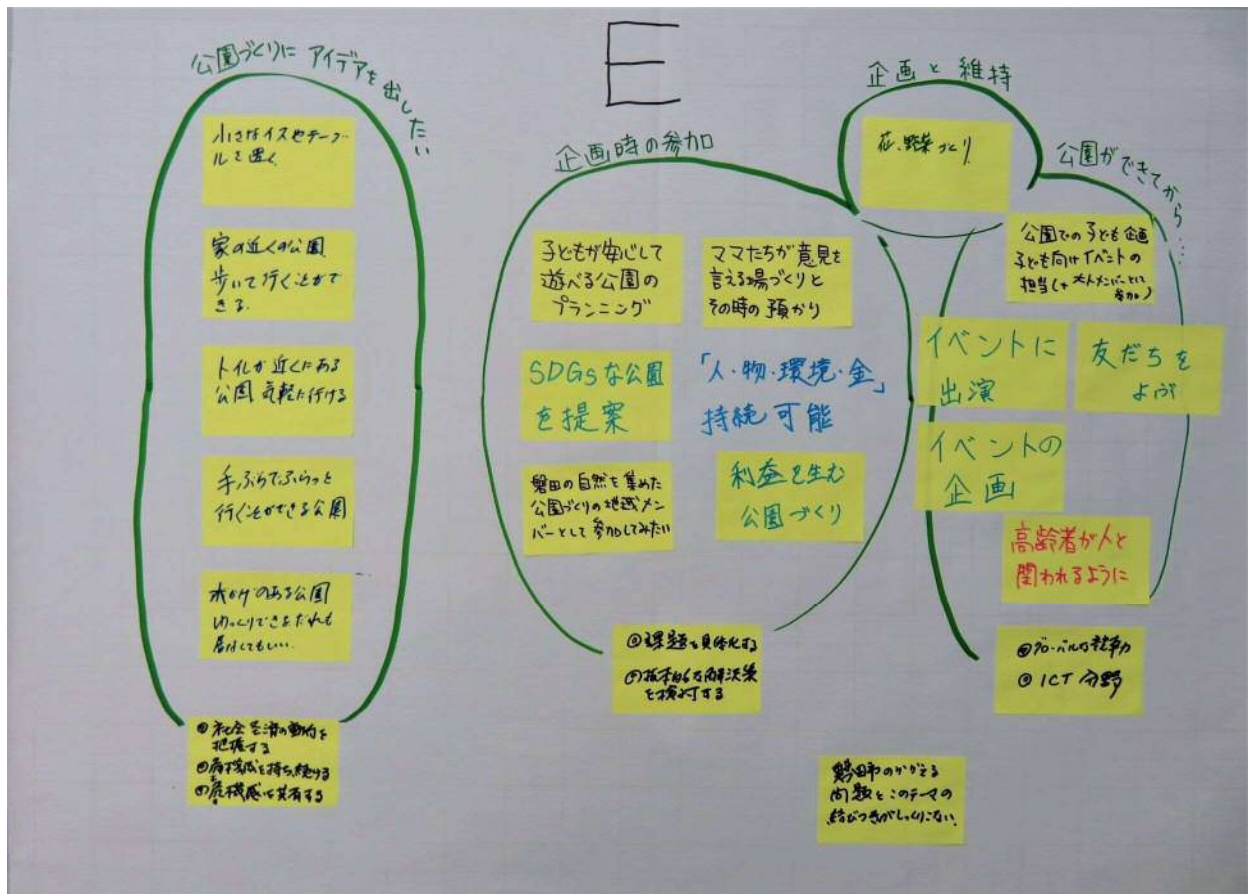 E
公園づくりに アイデアを出したい
小さなイスやテーブ
ルを置く
家の近くの公園
歩いて行くことがで
きる
トイレが近くにある
公園 気軽に行ける
手ぶらでふらっと
行くことができる公園
木かげのある公園
ゆっくりできる だれも
もいい
②社会経済の動向を
把握する
危機感を持ち続ける
危機感を共有する
企画時の参加
子どもが安心して
遊べる公園の
プランニング
ママたちが意見を
言える場づくりと
その時の預かり
SDGsな公園
を提案
「人・物・環境・金」
持続可能
磐田の自然を集めた
公園づくりの地域メン
バーとして参加してみたい
利益を生む
公園づくり
課題を具体化する
抜本的な解決策
を検討する
企画と維持
花、野菜づくり
公園ができてから....
公園での子ども企画
子ども向けイベントの
担当(+大人メンバーとして
参加)
イベントに
出演
友だちを
よぶ
イベントの
企画
高齢者が人と
関われるように
グローバルな競争力
ICT分野
磐田市のかかえる
問題とこのテーマの
結びつきがしっくりこない